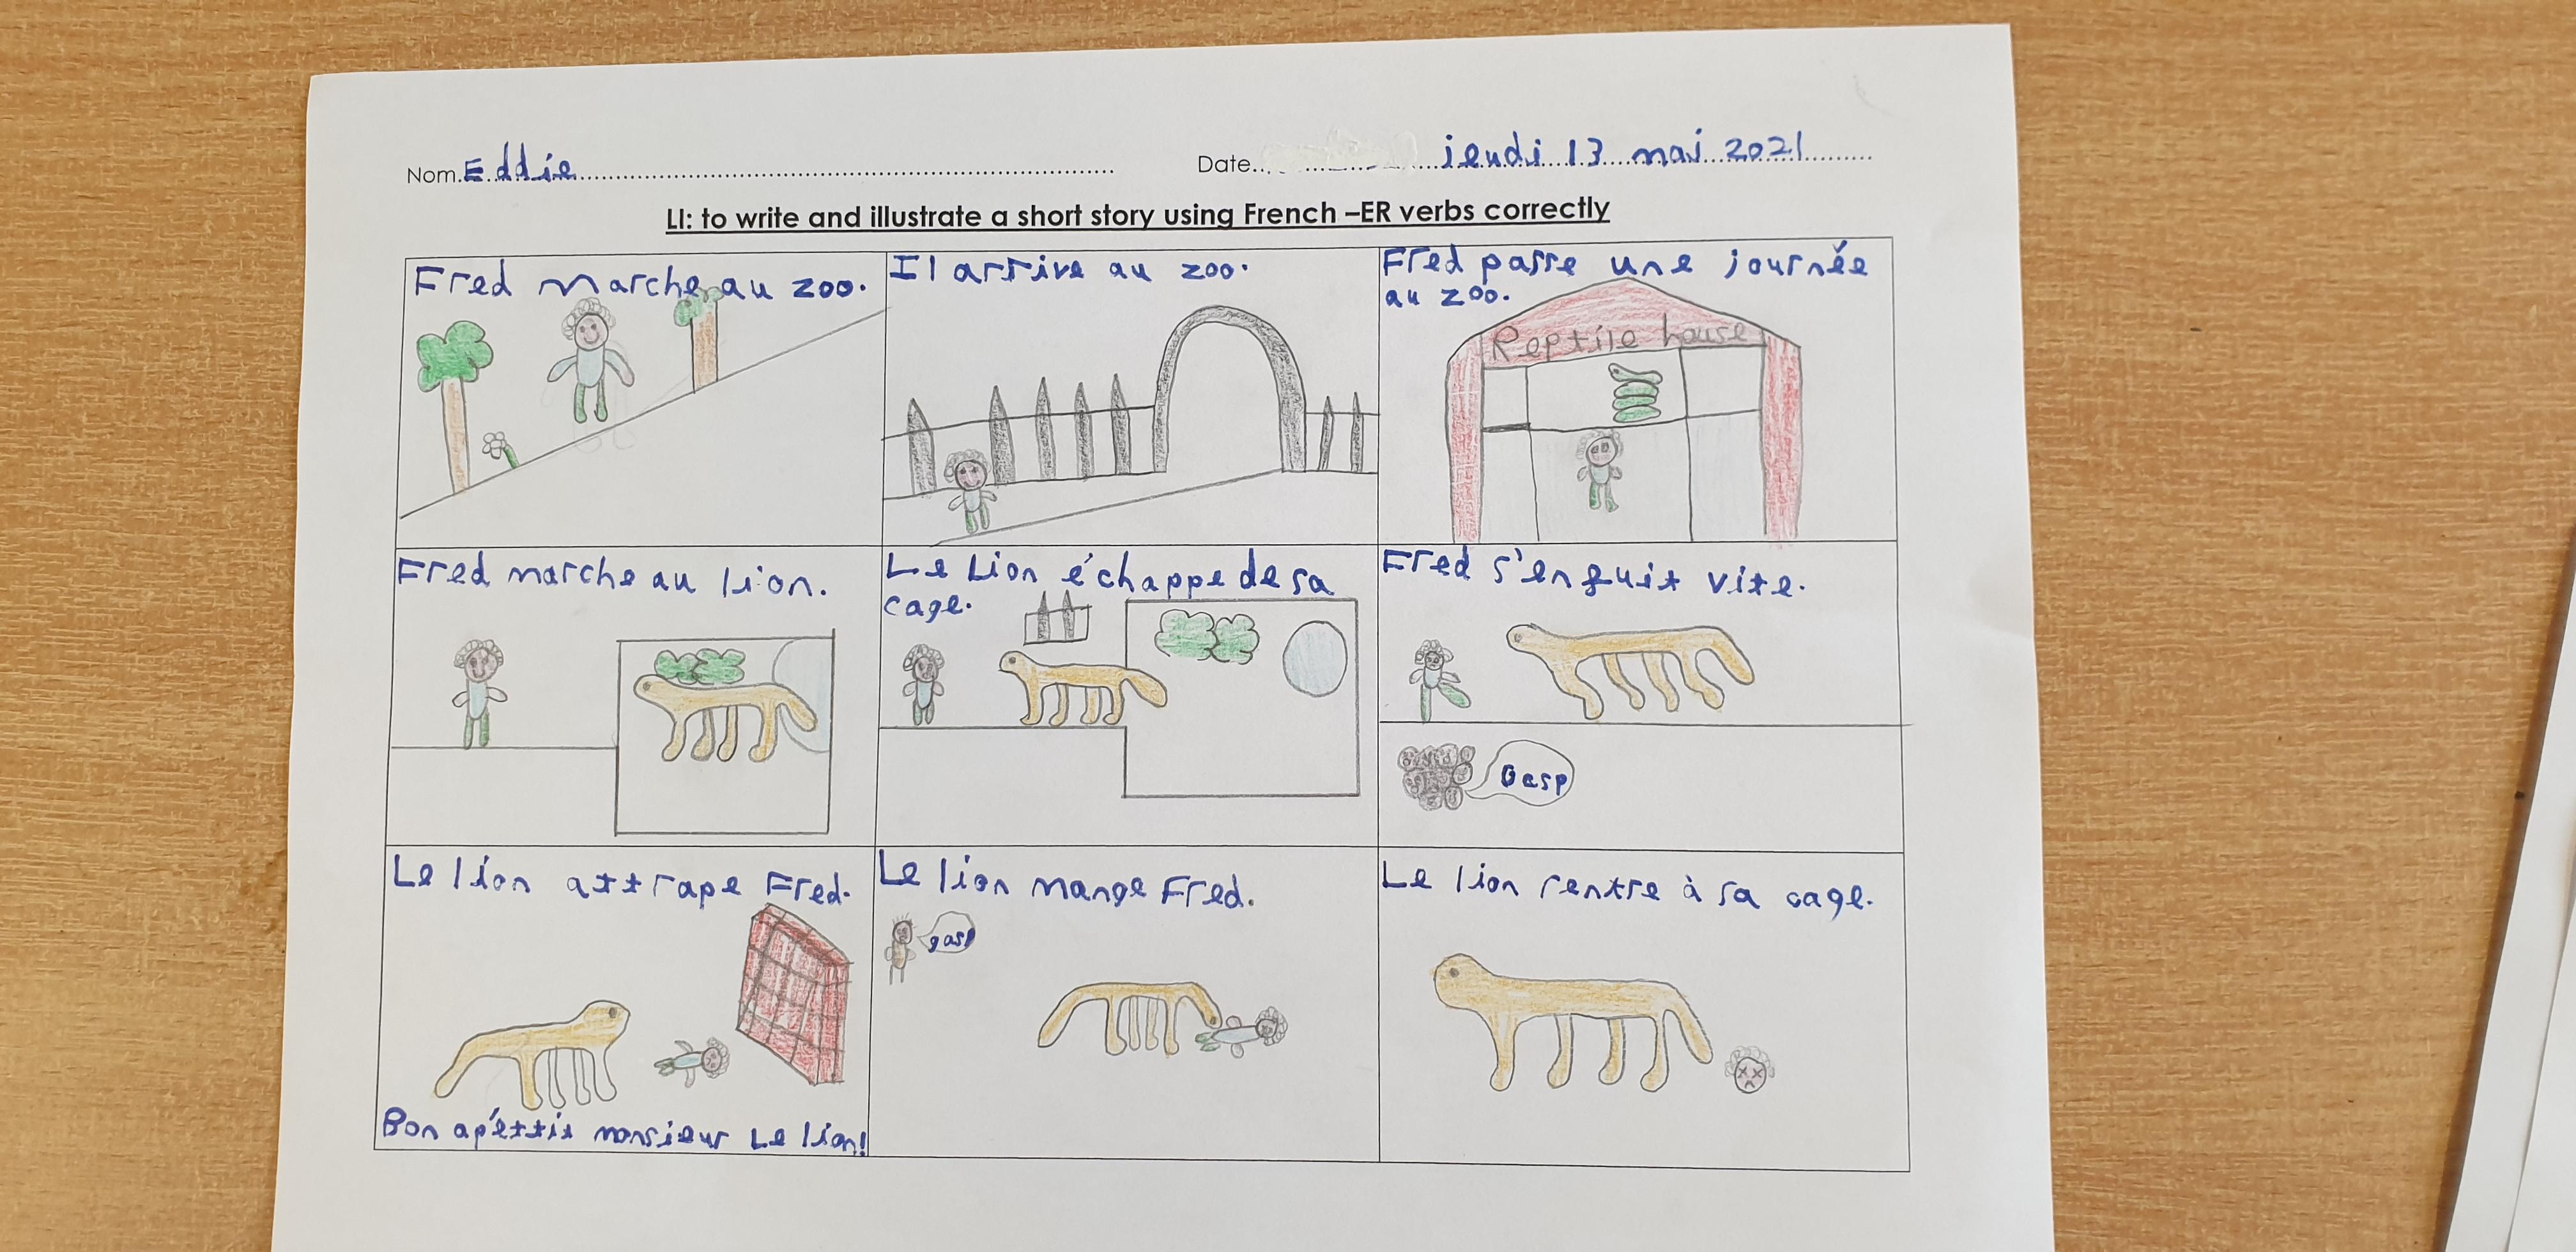 Nom. Eddie
Date. jeudi 13 mai 2021
LI: to write and illustrate a short story using French –ER verbs correctly
Fred marche au zoo.
Il arrive au zoo.
Fred passe une journée
au zoo.
Reptile house
Fred marche au lion.
Le Lion échappe de sa
cage.
Fred s'enfuit vite.
Gasp
Le lion attrape Fred.
Bon apéttit monsieur Le lion!
Le lion mange Fred.
gasp
Le lion rentre à sa cage.